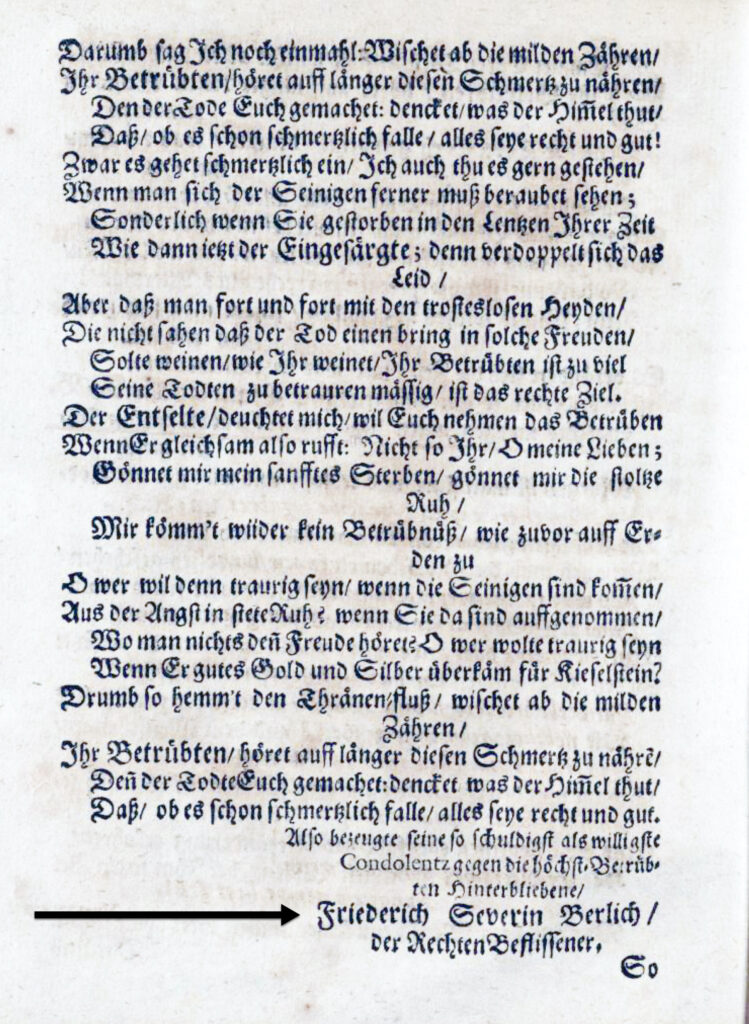 Darumb sag Ich noch einmahl: Wischet ab die milden Zähren/
Ihr Betrübten/ höret auff länger diesen Schmertz zu nähren/
Den der Tode Euch gemachet: dencket/ was der Him̃el thut/
Daß/ ob es schon schmertzlich falle/ alles seye recht und gut!
Zwar es gehet schmertzlich ein/ Ich auch thu es gern gestehen/
Wenn man sich der Seinigen ferner muß beraubet sehen;
Sonderlich wenn Sie gestorben in den Lentzen Ihrer Zeit
Wie dann ietzt der Eingesärgte; denn verdoppelt sich das
Leid /
Aber daß man fort und fort mit den trosteslosen Heyden/
Die nicht sahen daß der Tod einen bring in solche Freuden/
Solte weinen/ wie Ihr weinet/ Ihr Betrübten ist zu viel
Seine Todten zu betrauren mässig/ ist das rechte Ziel.
Der Entselte/ deuchtet mich/ wil Euch nehmen das Betrüben
Wenn Er gleichsam also rufft: Nicht so Ihr/ O meine Lieben;
Gönnet mir mein sanfftes Sterben/ gönnet mir die stoltze
Ruh /
Mir kömm't wiider kein Betrübnüß/ wie zuvor auff Er-
den zu
O wer wil denn traurig seyn/ wenn die Seinigen sind kom̃en/
Aus der Angst in stete Ruh? wenn Sie da sind auffgenommen/
Wo man nichts deñ Freude höret? O wer wolte traurig seyn
Wenn Er gutes Gold und Silber überkäm für Kieselstein?
Drumb so hemm't den Thränen-fluß/ wischet ab die milden
Zähren /
Ihr Betrübten/ höret auff länger diesen Schmertz zu nährẽ/
Deñ der Todte Euch gemachet: dencket was der Him̃el thut/
Daß/ ob es schon schmertzlich falle/ alles seye recht und gut.
Also bezeugte seine so schuldigst als willigste
Condolentz gegen die höchst-Betrüb-
ten Hinterbliebene/
Friederich Severin Berlich /
der Rechten Beflissener.
So